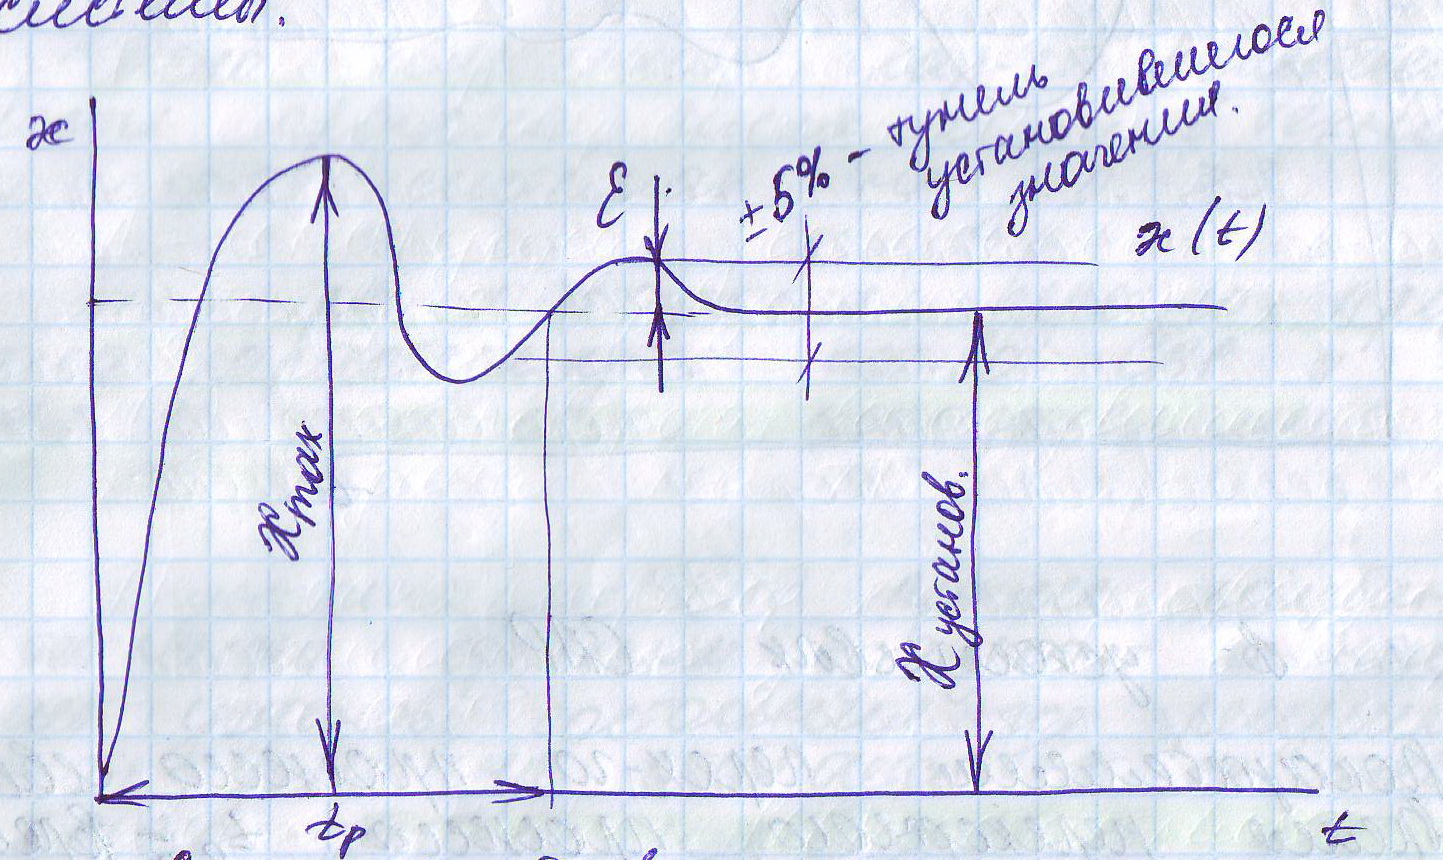 x
ε
±5% - тунель
установившегося
значения.
x(t)
xmax
xустанов.
tр
t